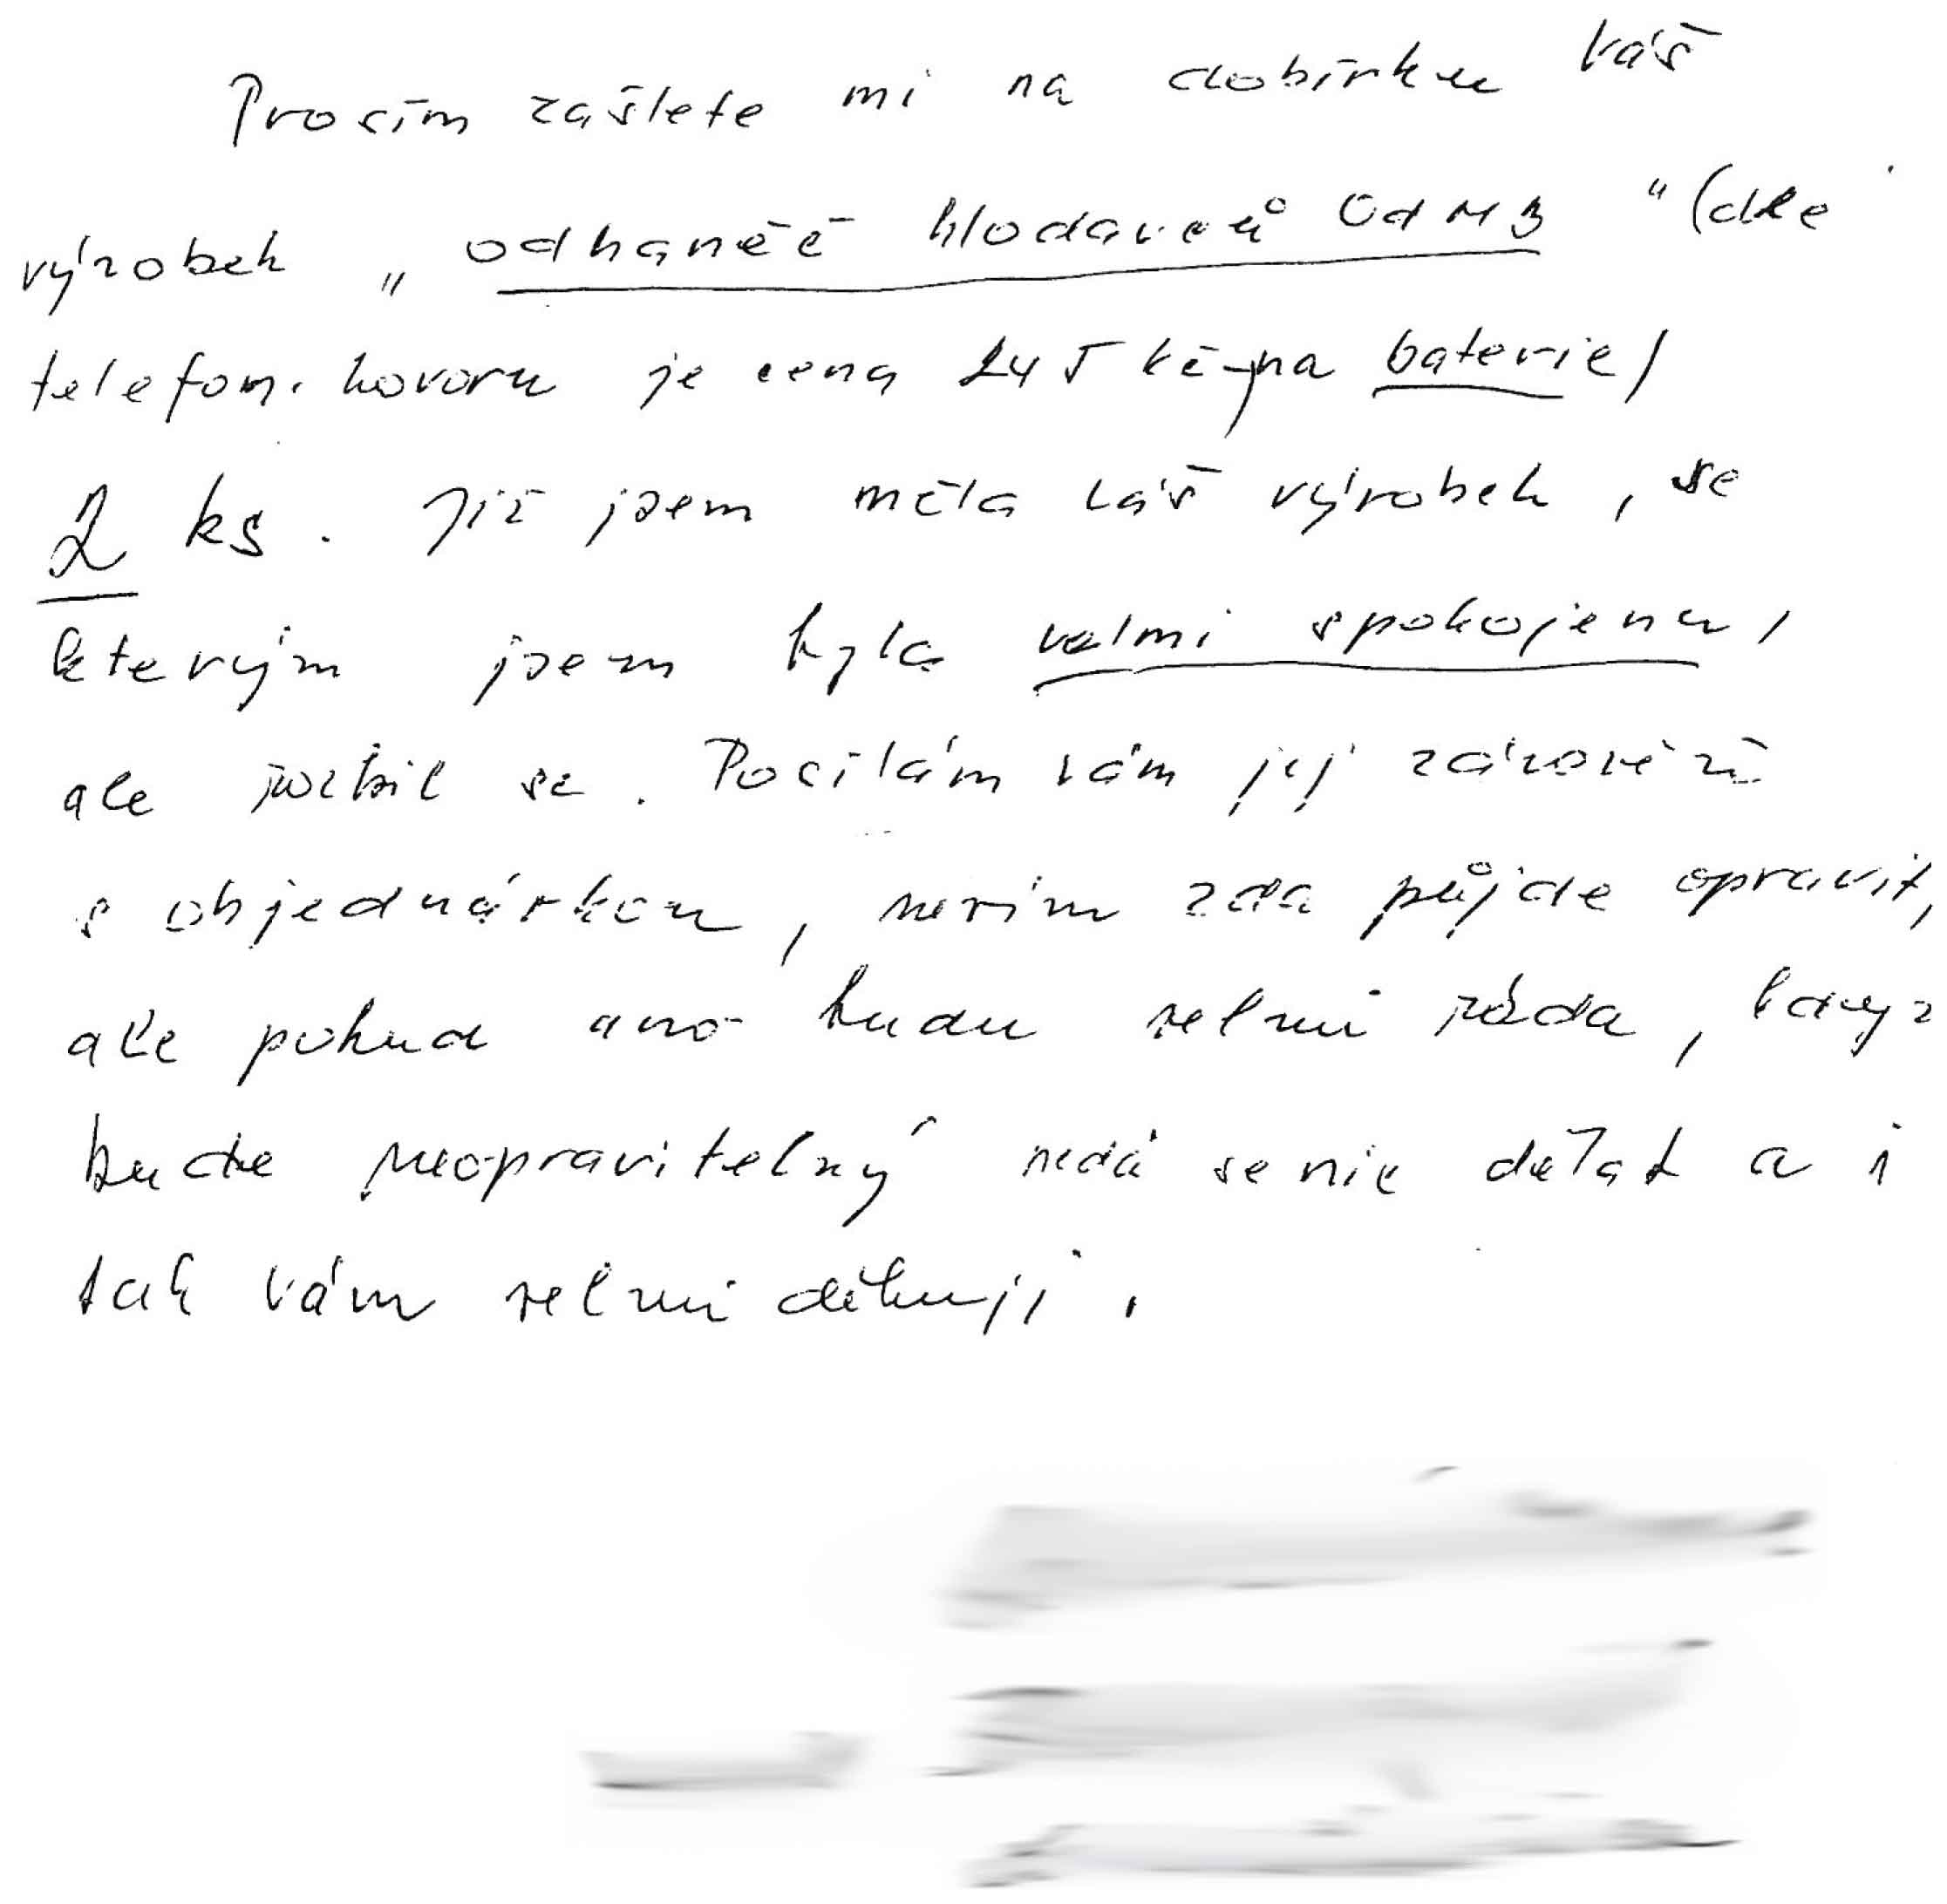 Prosím zašlete mi na dobírku Váš
výrobek „odhaněč hlodavců Od M3 “ (dle
telefon. hovoru je cena 245 kč - na baterie)
2 ks. Již jsem měla Váš výrobek, se
kterým jsem byla velmi spokojena,
ale se. Posílám vám jej zároveň
s objednávkou, nevím zda půjde opravit,
ale pokud ano budu velmi ráda, když
bude neopravitelný nedá se nic dělat a i
tak vám velmi děkuji.